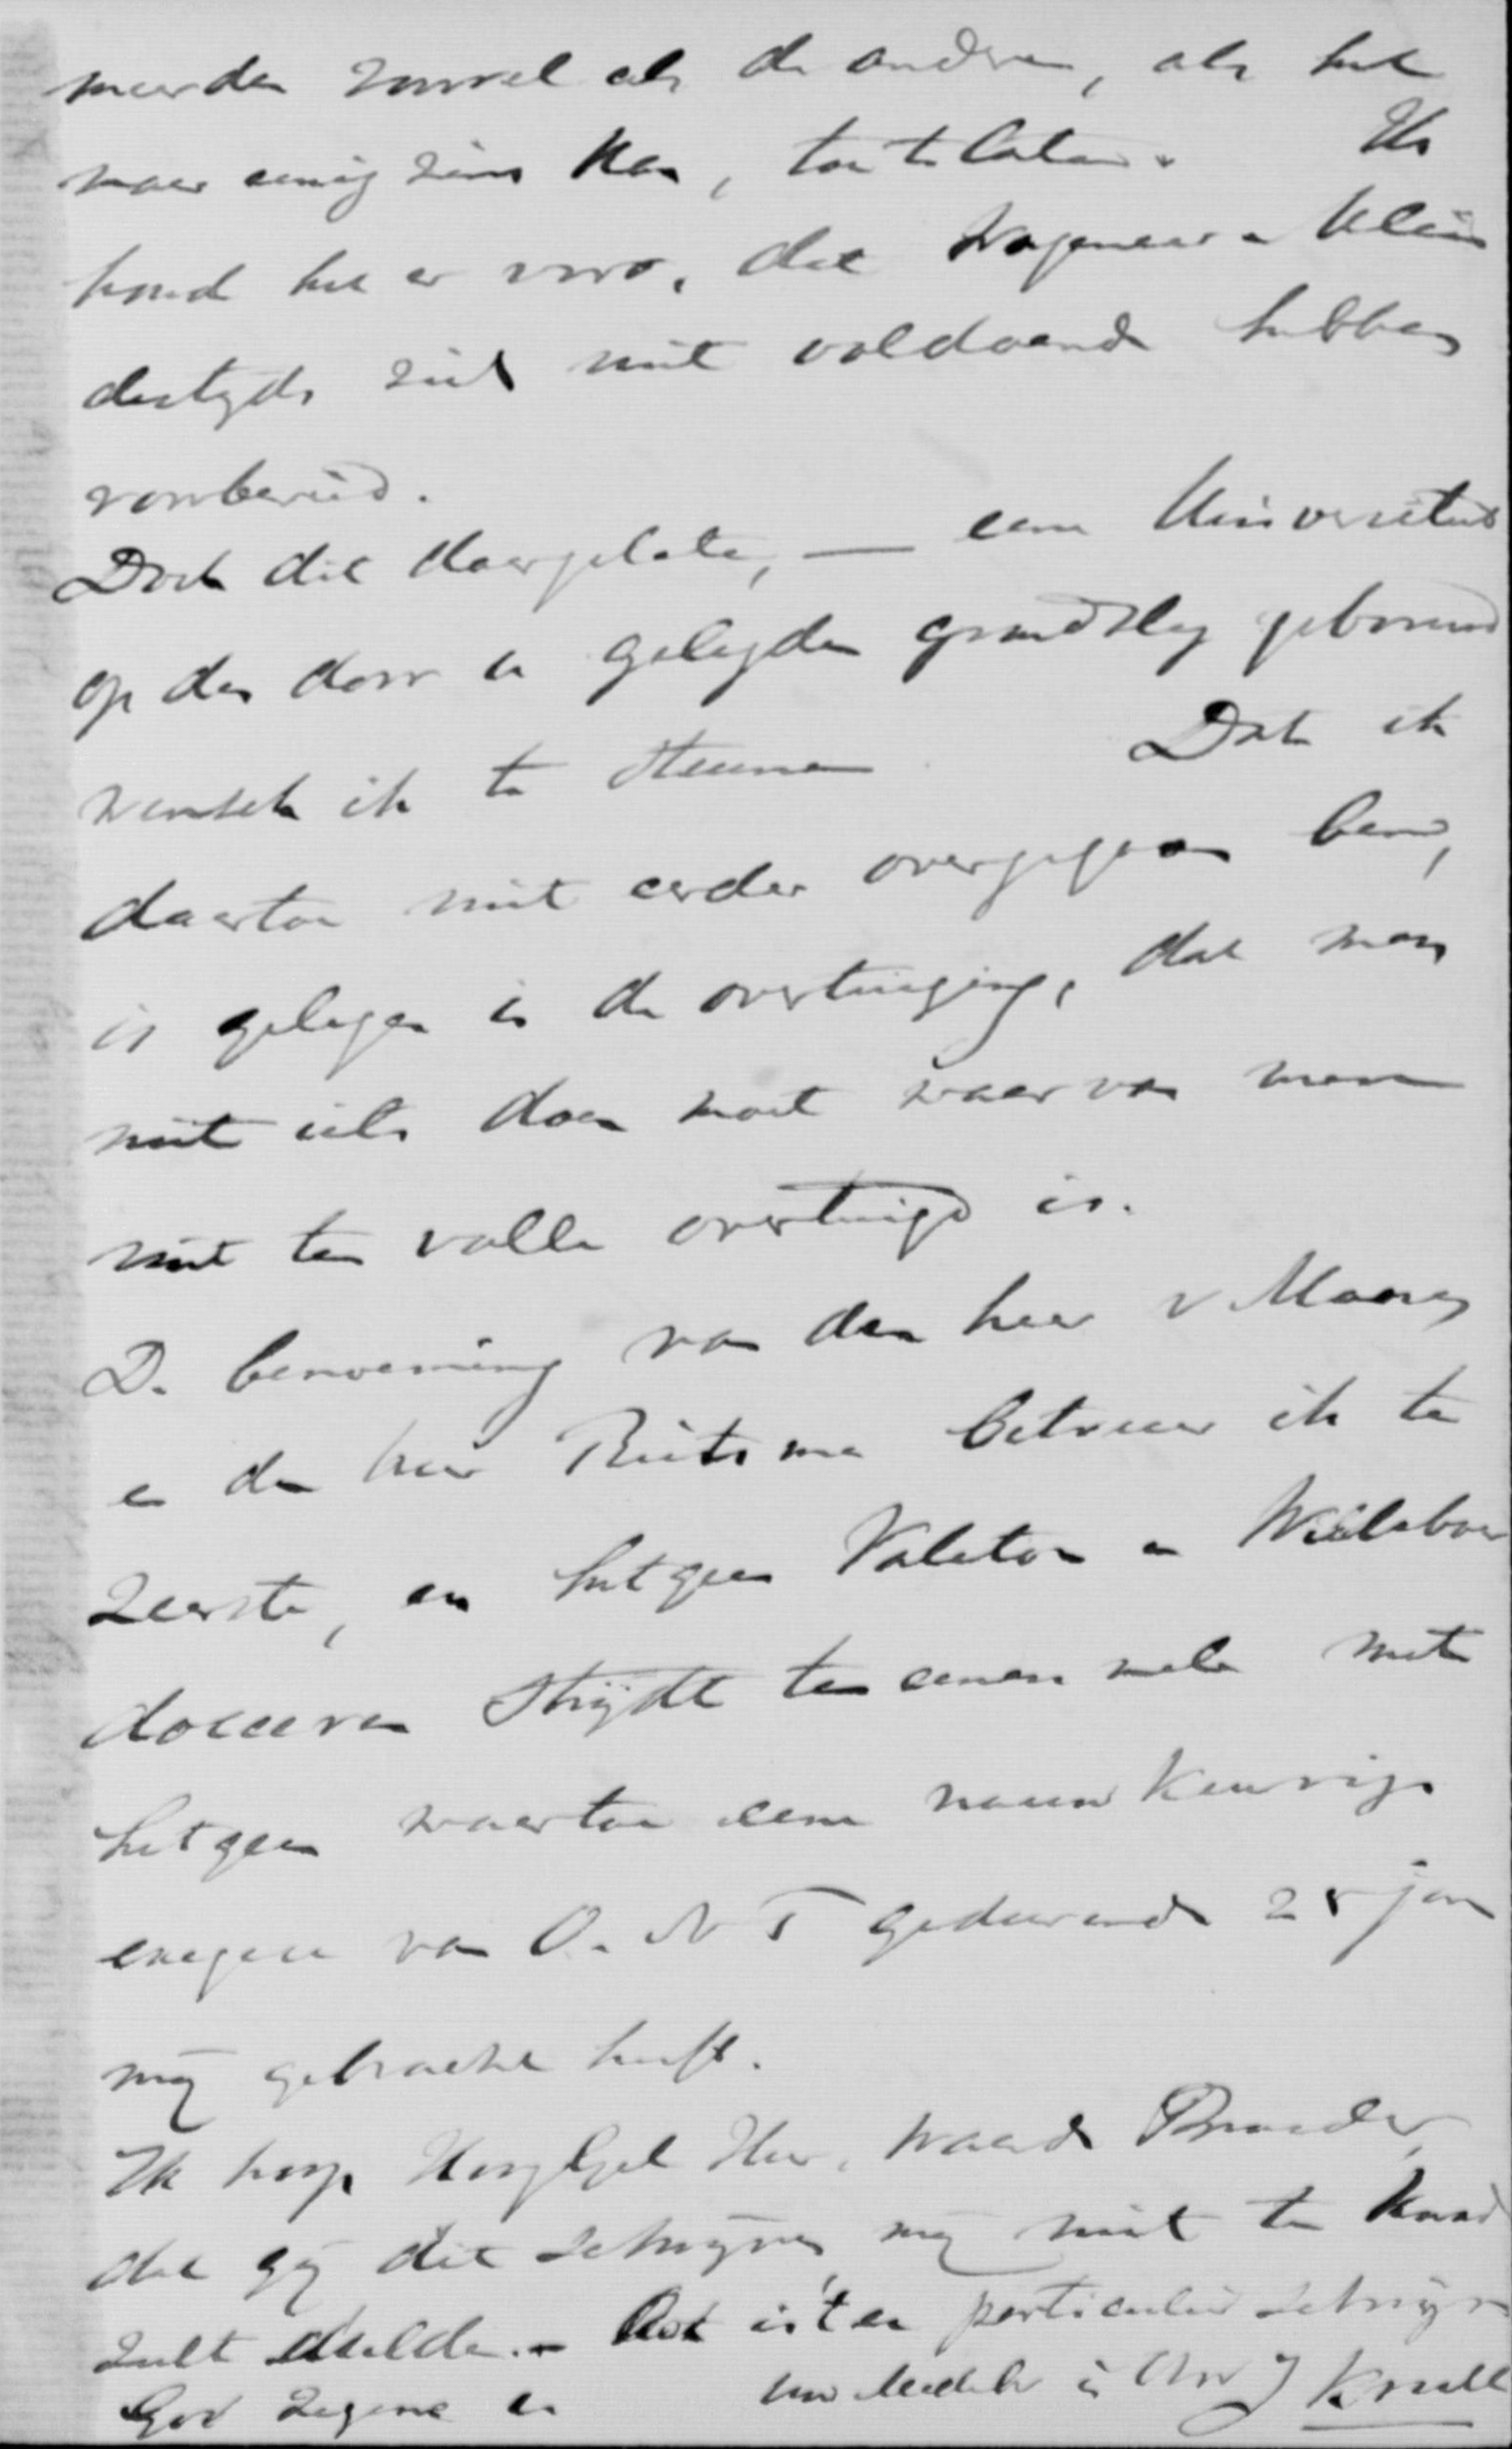 meerdere zoowel als de andere, als het
maar eenigzins kan, toe te laten. Ik
houd het er voor, dat Wagenaar en Klein
destyds zich niet voldoende hebben
voorbereid.
Doch dit daargelaten, — eene Universiteit
op den door u gelegden grondslag gebouwd
wensch ik te steunen. Dat ik
daartoe niet eerder overgegaan ben,
is gelegen in de overtuiging, dat men
niet iets doen moet waarvan men
niet ten volle overtuigd is.
De benoeming van den heer v Manen
en den heer Reitsma betreur ik ten
zeerste, en hetgeen Valeton en Wildeboer
doceeren strijdt ten eenen male met
hetgeen waartoe eene nauwkeurige
exegese van O. N T gedurende 25 jaar
mij gebracht heeft.
Ik hoop Hooggel Heer, waarde Broeder,
dat gij dit schrijven mij niet ten kwade
zult duiden. – Ook is 't een particulier schrijven
God zegene u uw liefdeh in Chr J Knall